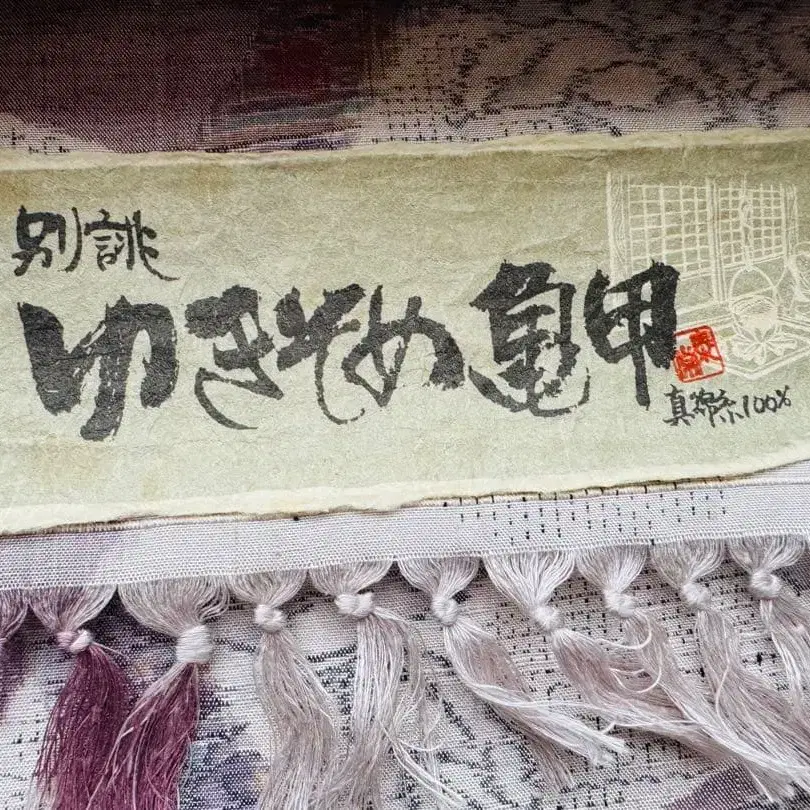 別誂
ゆきそめ亀甲
真綿糸100%